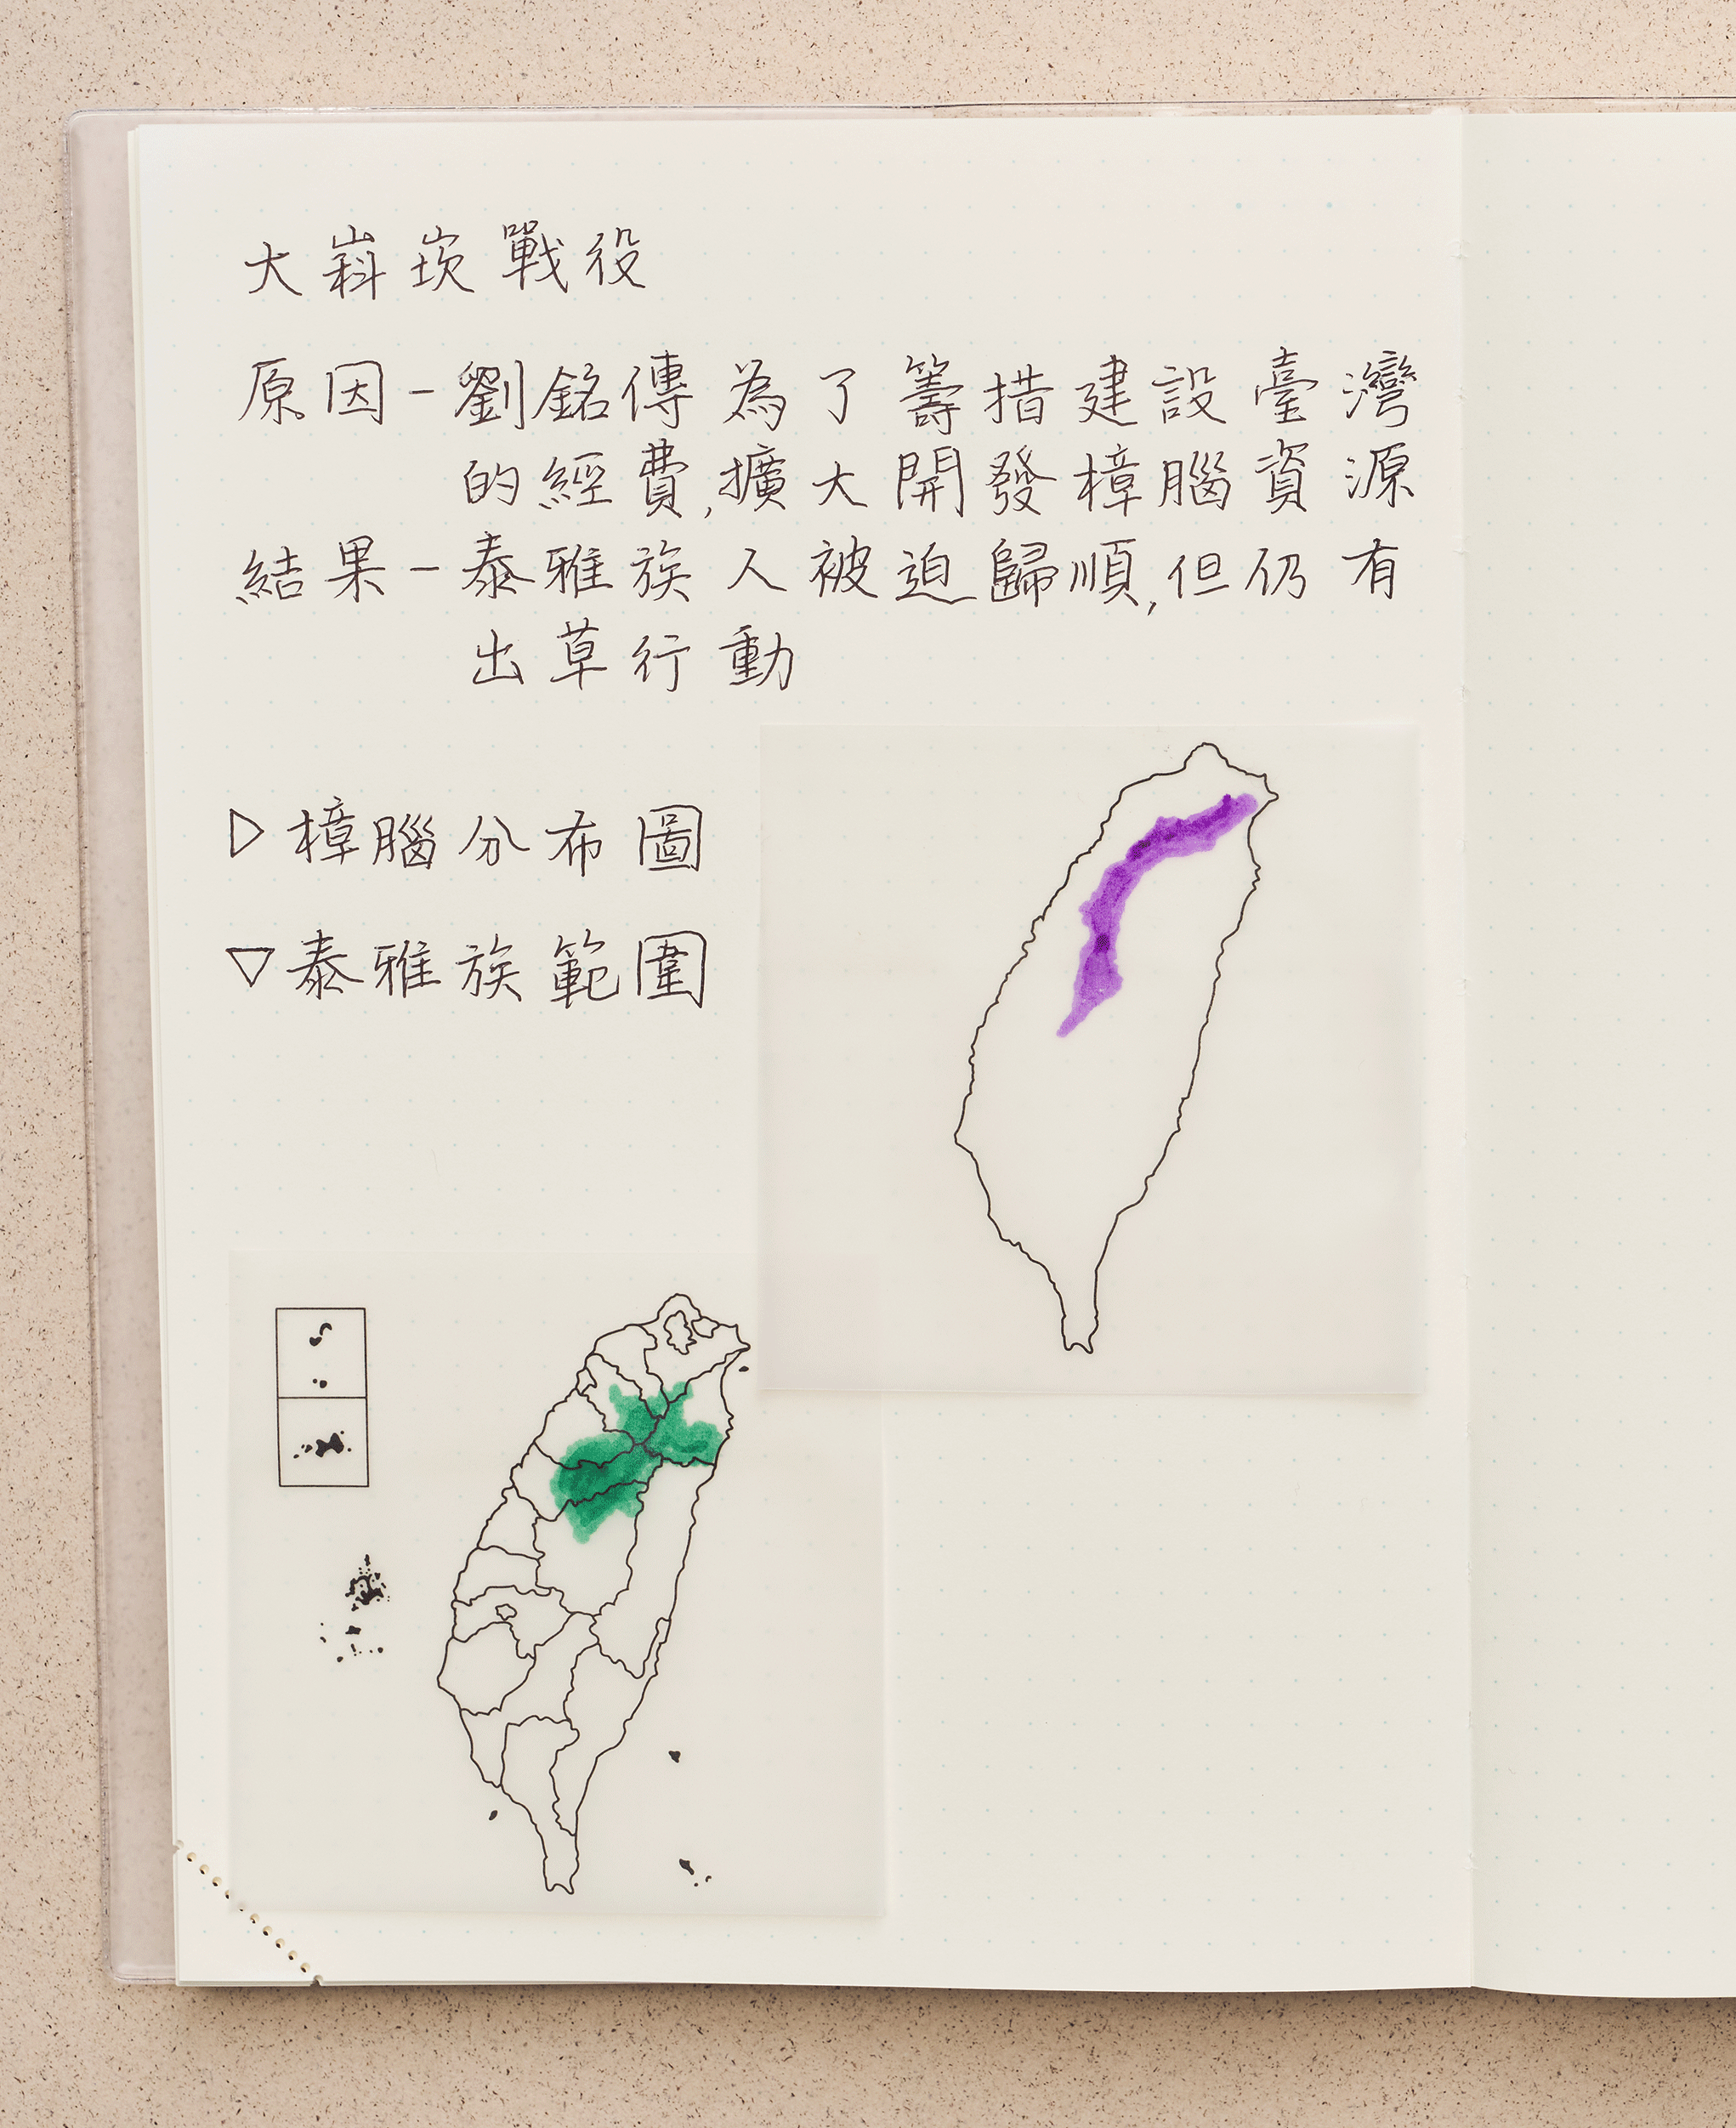 大嵙崁戰役
原因-劉銘傳為了籌措建設臺灣
的經費,擴大開發樟腦資源
結果-泰雅族人被迫歸順,但仍有
出草行動
▷樟腦分布圖
▽泰雅族範圍